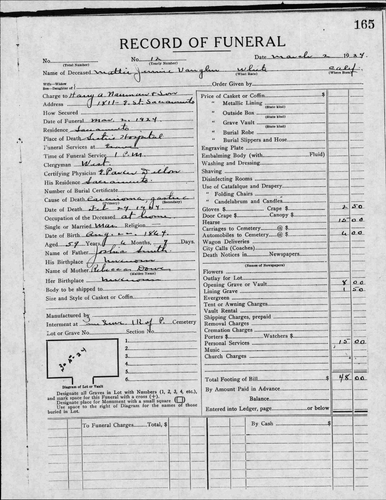 165
RECORD OF FUNERAL
No. No. 12 March 2 1924
(Total Number) (Yearly Number)
Name of Deceased Mattie Jennie Vaughn White Calif.
(What Race) (Where Born)
Order Given by
Charge to Harry A. Nauman & Son
Address 1811- G. St. Sacramento
How Secured
Date of Funeral Mar. 2, 1924.
Residence Sacramento
Place of Death Sisters Hospital
Funeral Services at
Time of Funeral Service 1 P.M.
Clergyman West
Certifying Physician E Paul Dillon
His Residence Sacramento
Number of Burial Certificate
Cause of Death Carcinoma, gastric
Date of Death Feb 29, 1924
Occupation of the Deceased at home
Single or Married Mar Religion
Date of Birth Aug. 22, 1864
Aged 59 Years 6 Months 7 Days
Name of Father Joshua Smith
His Birthplace
Name of Mother Rebecca
(Maiden Name)
Her Birthplace
Body to be shipped to
Size and Style of Casket or Coffin
Manufactured by
Interment at I.O.O.F. Cemetery
Lot or Grave No. Section No.
1
2
3
4
Diagram of Lot or Vault
Designate all Graves in Lot with Numbers (1, 2, 3, 4, etc.),
and mark space for this Funeral with a cross (+).
Designate place for Monument with a small square
Use space to the right of Diagram for the names of those
buried in Lot.
Price of Casket or Coffin
" Metallic Lining
(State Kind)
" Outside Box
(State Kind)
" Grave Vault
(State Kind)
" Burial Robe
" Burial Slippers and Hose
Engraving Plate
Embalming Body (with Fluid)
Washing and Dressing
Shaving
Disinfecting Rooms
Use of Catafalque and Drapery
" Folding Chairs
" Candelabrum and Candles
Gloves $ Cape $ 2 50
Door Crape $ Canopy $
Hearse 15 00
Carriages to Cemetery @ $
Automobiles to Cemetery @ $
Wagon Deliveries
City Calls (Coaches)
Death Notices in Newspapers
(Names of Newspapers)
Flowers
Outlay for Lot
Opening Grave or Vault 8 00
Lining Grave 1 50
Evergreen
Tent or Awning Charges
Vault Rental
Shipping Charges, prepaid
Removal Charges
Cremation Charges
Porters $ Watchers $
Personal Services 15 00
Music
Church Charges
Total Footing of Bill $ 48 00
By Amount Paid in Advance
Balance
Entered into Ledger, page or below
To Funeral Charges Total, $
By Cash $